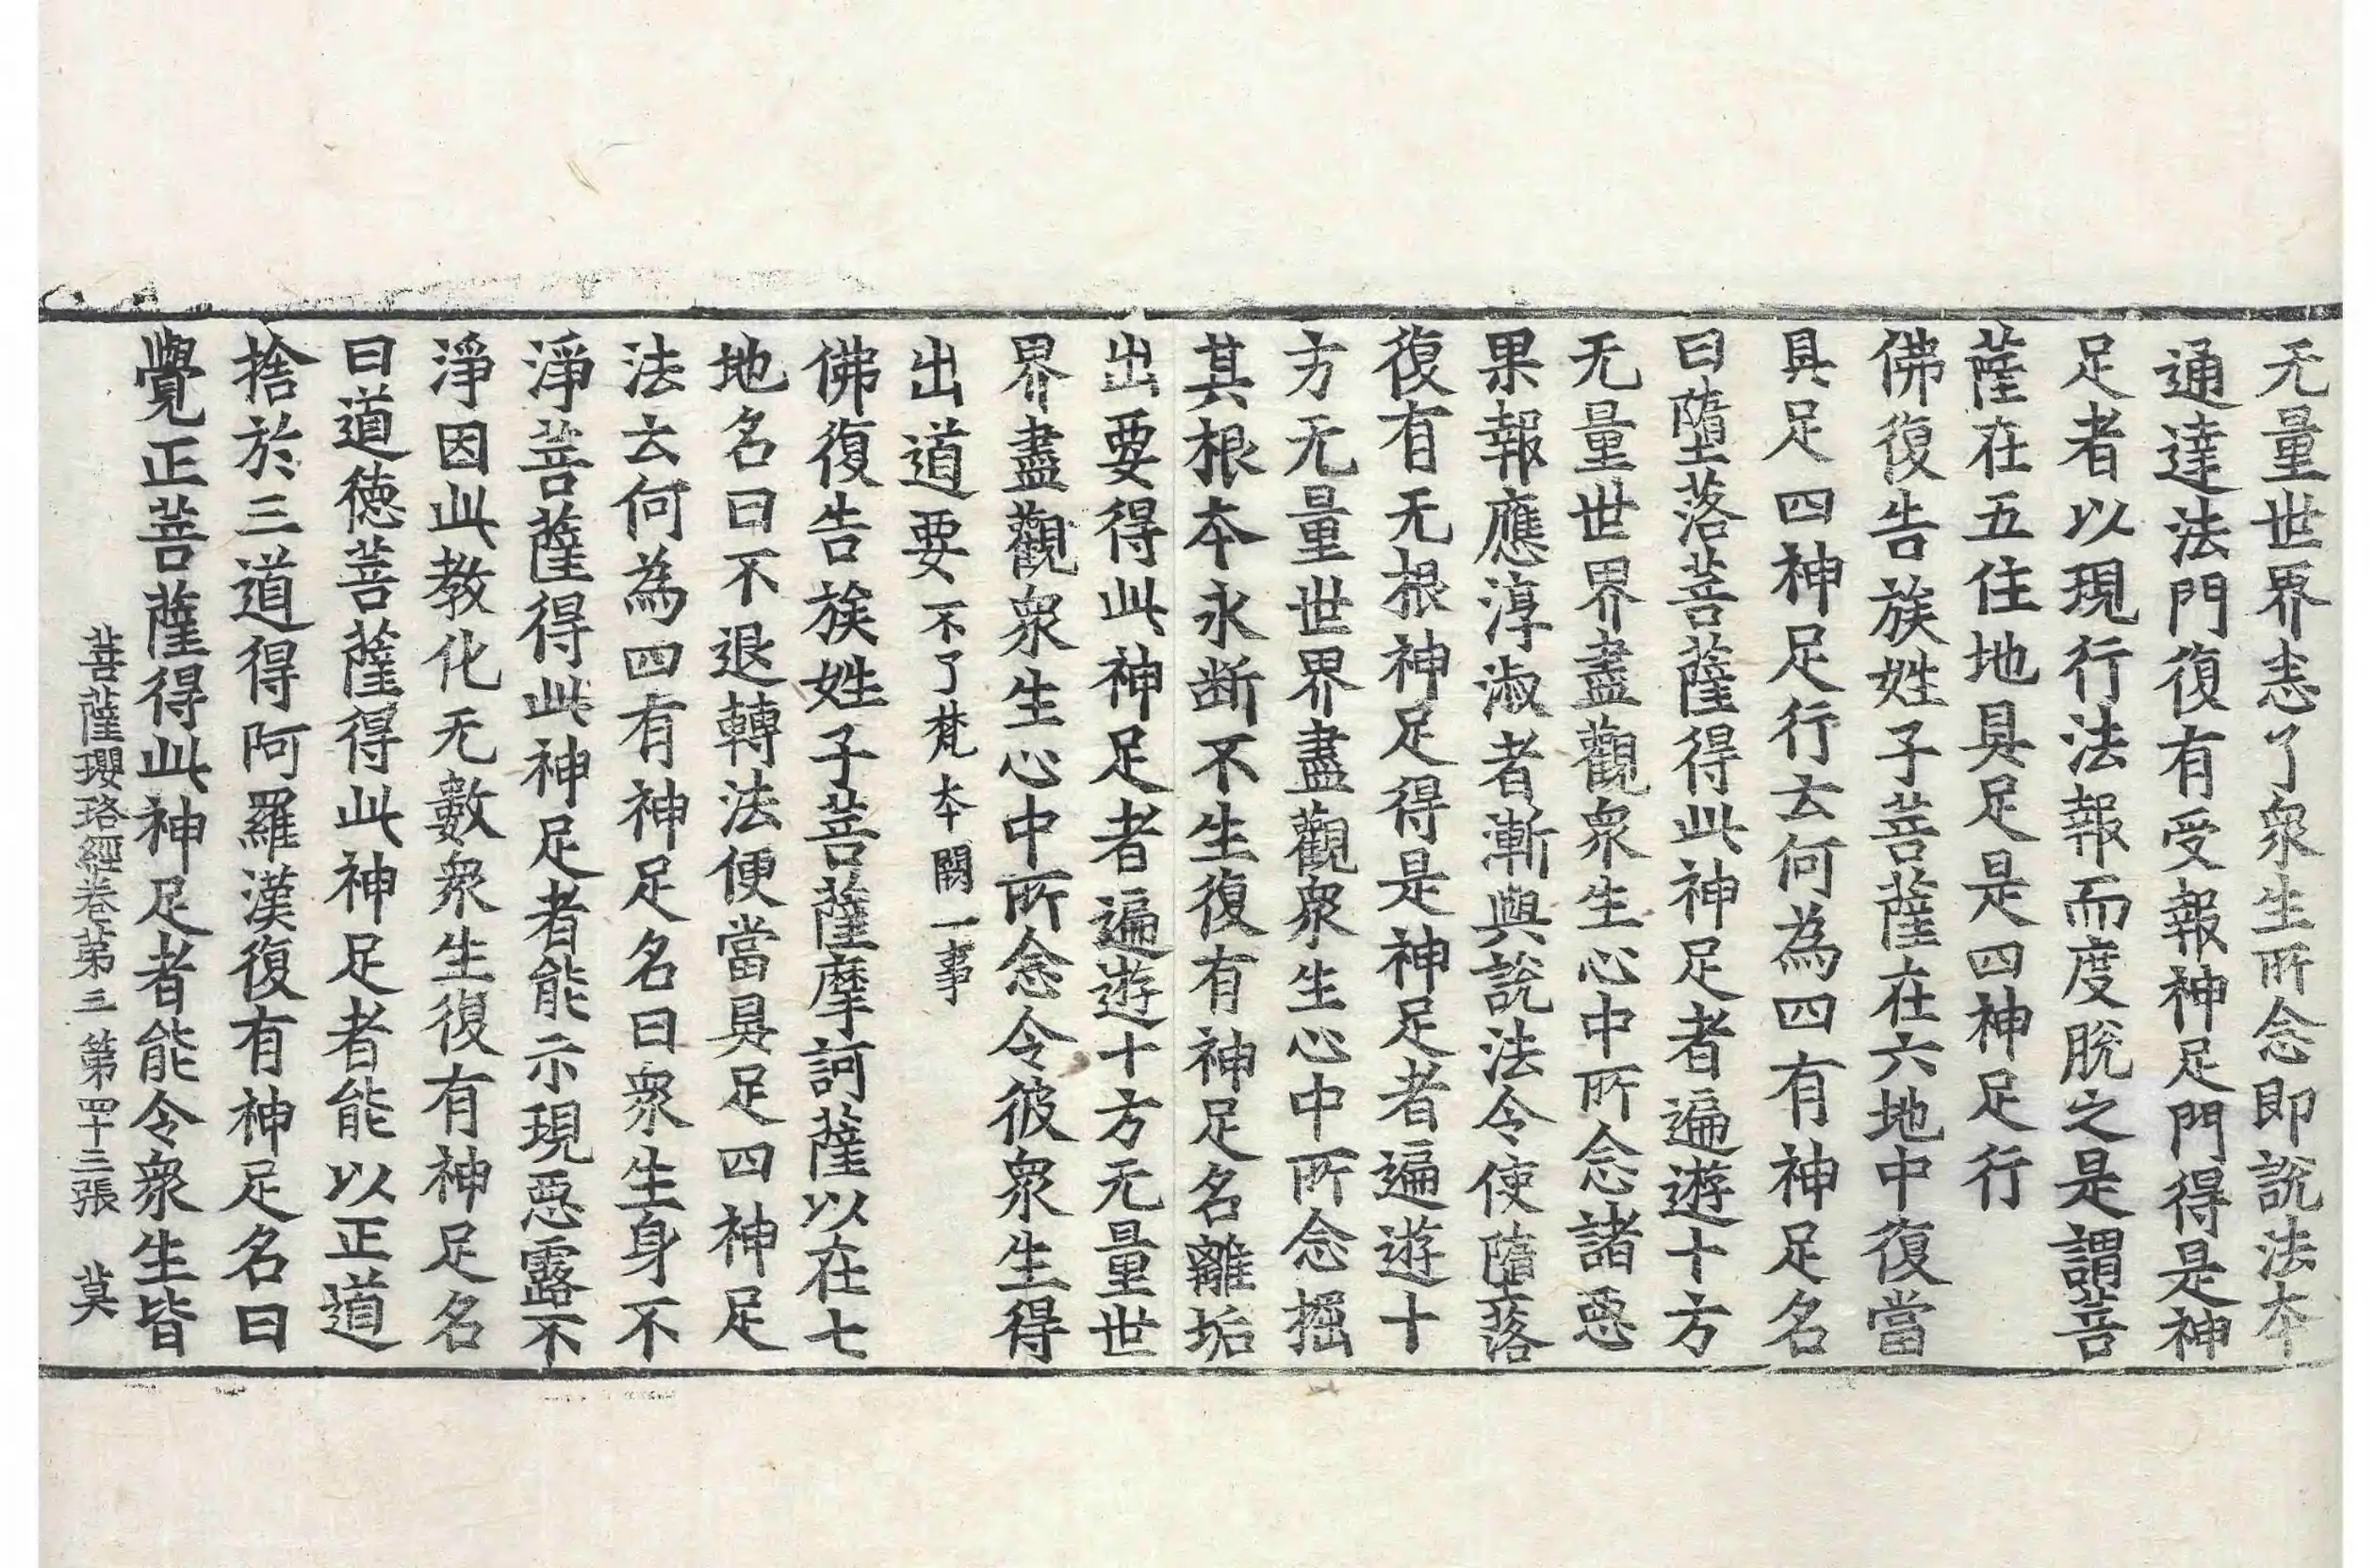 无量世界志了衆生所念即說法本
通達法門復有受報神足門得是神
足者以現行法報而度脫之是謂菩
薩在五住地具足是四神足行
佛復告族姓子菩薩在六地中復當
具足四神足行云何為四有神足名
曰墮落菩薩得此神足者遍遊十方
无量世界盡觀衆生心中所念諸惡
果報應淳淑者漸與說法令使墮落
復有无根神足得是神足者遍遊十
方无量世界盡觀衆生心中所念掘
其根本永断不生復有神足名離垢
出要得此神足者遍遊十方无量世
界盡觀衆生心中所念令彼衆生得
出道要不了梵本闕一事
佛復告族姓子菩薩摩訶薩以在七
地名曰不退轉法便當具足四神足
法云何為四有神足名曰衆生身不
淨菩薩得此神足者能示現惡露不
淨因此教化无數衆生復有神足名
曰道德菩薩得此神足者能以正道
捨於三道得阿羅漢復有神足名曰
覺正菩薩得此神足者能令衆生皆
菩薩瓔珞經卷第三 第四十三張 莫